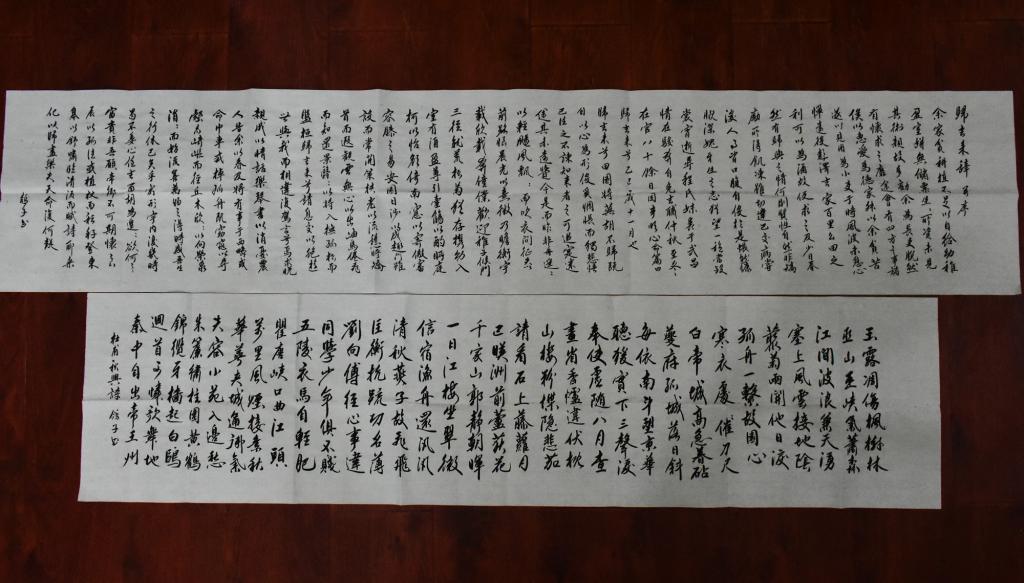 歸去來辭 并序
余家貧耕植不足以自給幼稚
盈室缾無儲粟生生所資未見
其術親故多勸余為長吏脫然
有懷求之靡途會有四方之事諸
侯以惠愛為德家叔以余貧苦
遂以見用為小邑于時風波未息心
憚遠役彭澤去家百里公田之
利可以為酒故便求之及少日眷
然有歸與之情何則質性自然非矯
厲所得飢凍雖切違己交病嘗
從人事皆口腹自役於是悵然慷
慨深愧平生之志猶望一稔當斂
裳宵逝尋程氏妹喪于武昌
情在駿奔自免去職仲秋至冬
在官八十餘日因事順心命篇曰
歸去來兮乙巳歲十一月也
歸去來兮田園將蕪胡不歸既
自以心為形役奚惆悵而獨悲悟
已往之不諫知來者之可追寔迷
途其未遠覺今是而昨非舟遙遙
以輕颺風飄飄而吹衣問征夫
以前路恨晨光之熹微乃瞻衡宇
載欣載奔僮僕歡迎稚子候門
三徑就荒松菊猶存攜幼入
室有酒盈尊引壺觴以自酌眄庭
柯以怡顏倚南窗以寄傲審
容膝之易安園日涉以成趣門雖
設而常關策扶老以流憩時矯
首而遐觀雲無心以出岫鳥倦飛
而知還景翳翳以將入撫孤松而
盤桓歸去來兮請息交以絕游
世與我而相違復駕言兮焉求悅
親戚之情話樂琴書以消憂農
人告余以春及將有事于西疇或
命巾車或棹孤舟既窈窕以尋
壑亦崎嶇而經丘木欣欣以向榮泉
涓涓而始流善萬物之得時感吾生
之行休已矣乎寓形宇內復幾時
曷不委心任去留胡為遑遑欲何之
富貴非吾願帝鄉不可期懷良
辰以孤往或植杖而耘耔登東
皋以舒嘯臨清流而賦詩聊乘
化以歸盡樂夫天命復何疑
玉露凋傷楓樹林
巫山巫峽氣蕭森
江間波浪兼天湧
塞上風雲接地陰
叢菊兩開他日淚
孤舟一繫故園心
寒衣處處催刀尺
白帝城高急暮砧
夔府孤城落日斜
每依南斗望京華
聽猿實下三聲淚
奉使虛隨八月查
畫省香爐違伏枕
山樓粉堞隱悲笳
請看石上藤蘿月
已映洲前蘆荻花
千家山郭靜朝暉
一日江樓坐翠微
信宿漁舟還汎汎
清秋燕子故飛飛
匡衡抗疏功名薄
劉向傳經心事違
同學少年俱不賤
五陵衣馬自輕肥
瞿唐峽口曲江頭
萬里風煙接素秋
華萼夾城通御氣
芙蓉小苑入邊愁
朱簾繡柱圍黃鶴
錦纜牙檣起白鷗
迴首可憐歌舞地
秦中自古帝王州
杜甫秋興詩